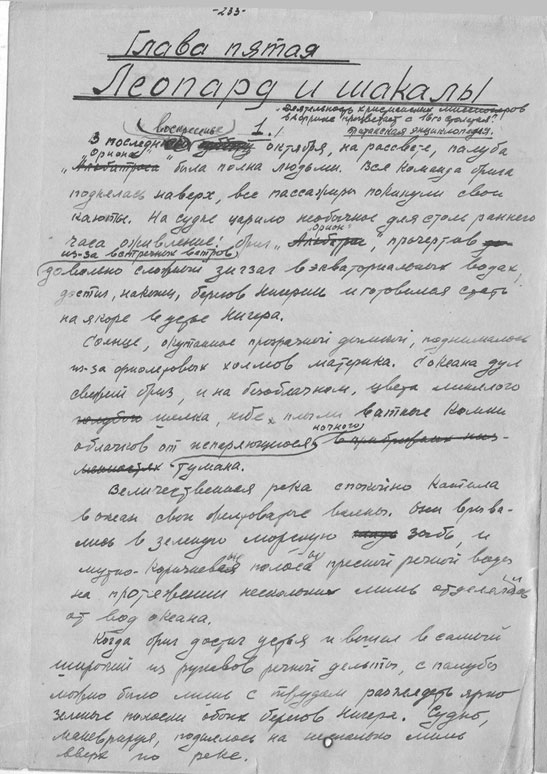 -233-
Глава пятая
Леопард и шакалы
Деятельность христианских миссионеров
в Африке процветает с 16го столетия.
воскресенье 1.
В последнее октября, на рассвете, палуба
"Ориона"
"Альбатроса" была полна людьми. Вся команда брига
поднялась наверх, все пассажиры покинули свои
каюты. На судне царило необычное для столь раннего
"Орион"
часа оживление: бриг "Альбатрос", прочертив
из-за встречных ветров
довольно сложный зигзаг в экваториальных водах,
достиг, наконец, берегов Нигерии и готовился стать
на якоре в устье Нигера.
Солнце, окутанное прозрачной дымкой, поднималось
из-за фиолетовых холмов материка. С океана дул
свежий бриз, и на безоблачном, цвета
голубого шелка, небе плыли ватные комки
ночного
облачков от испаряющегося в прибрежных низ-
менностях тумана.
Величественная река спокойно катила
в океан свои волны. Они врыва-
лись в зеленую морскую зыбь, и
мутно-коричневые полосы пресной речной воды
на протяжении нескольких миль отделялись
от вод океана.
Когда бриг достиг устья и вошел в самый
широкий из рукавов речной дельты, с палубы
можно было лишь с трудом разглядеть ярко
зеленые полоски обоих берегов Нигера. Судно,
маневрируя, поднялось на несколько миль
вверх по реке.